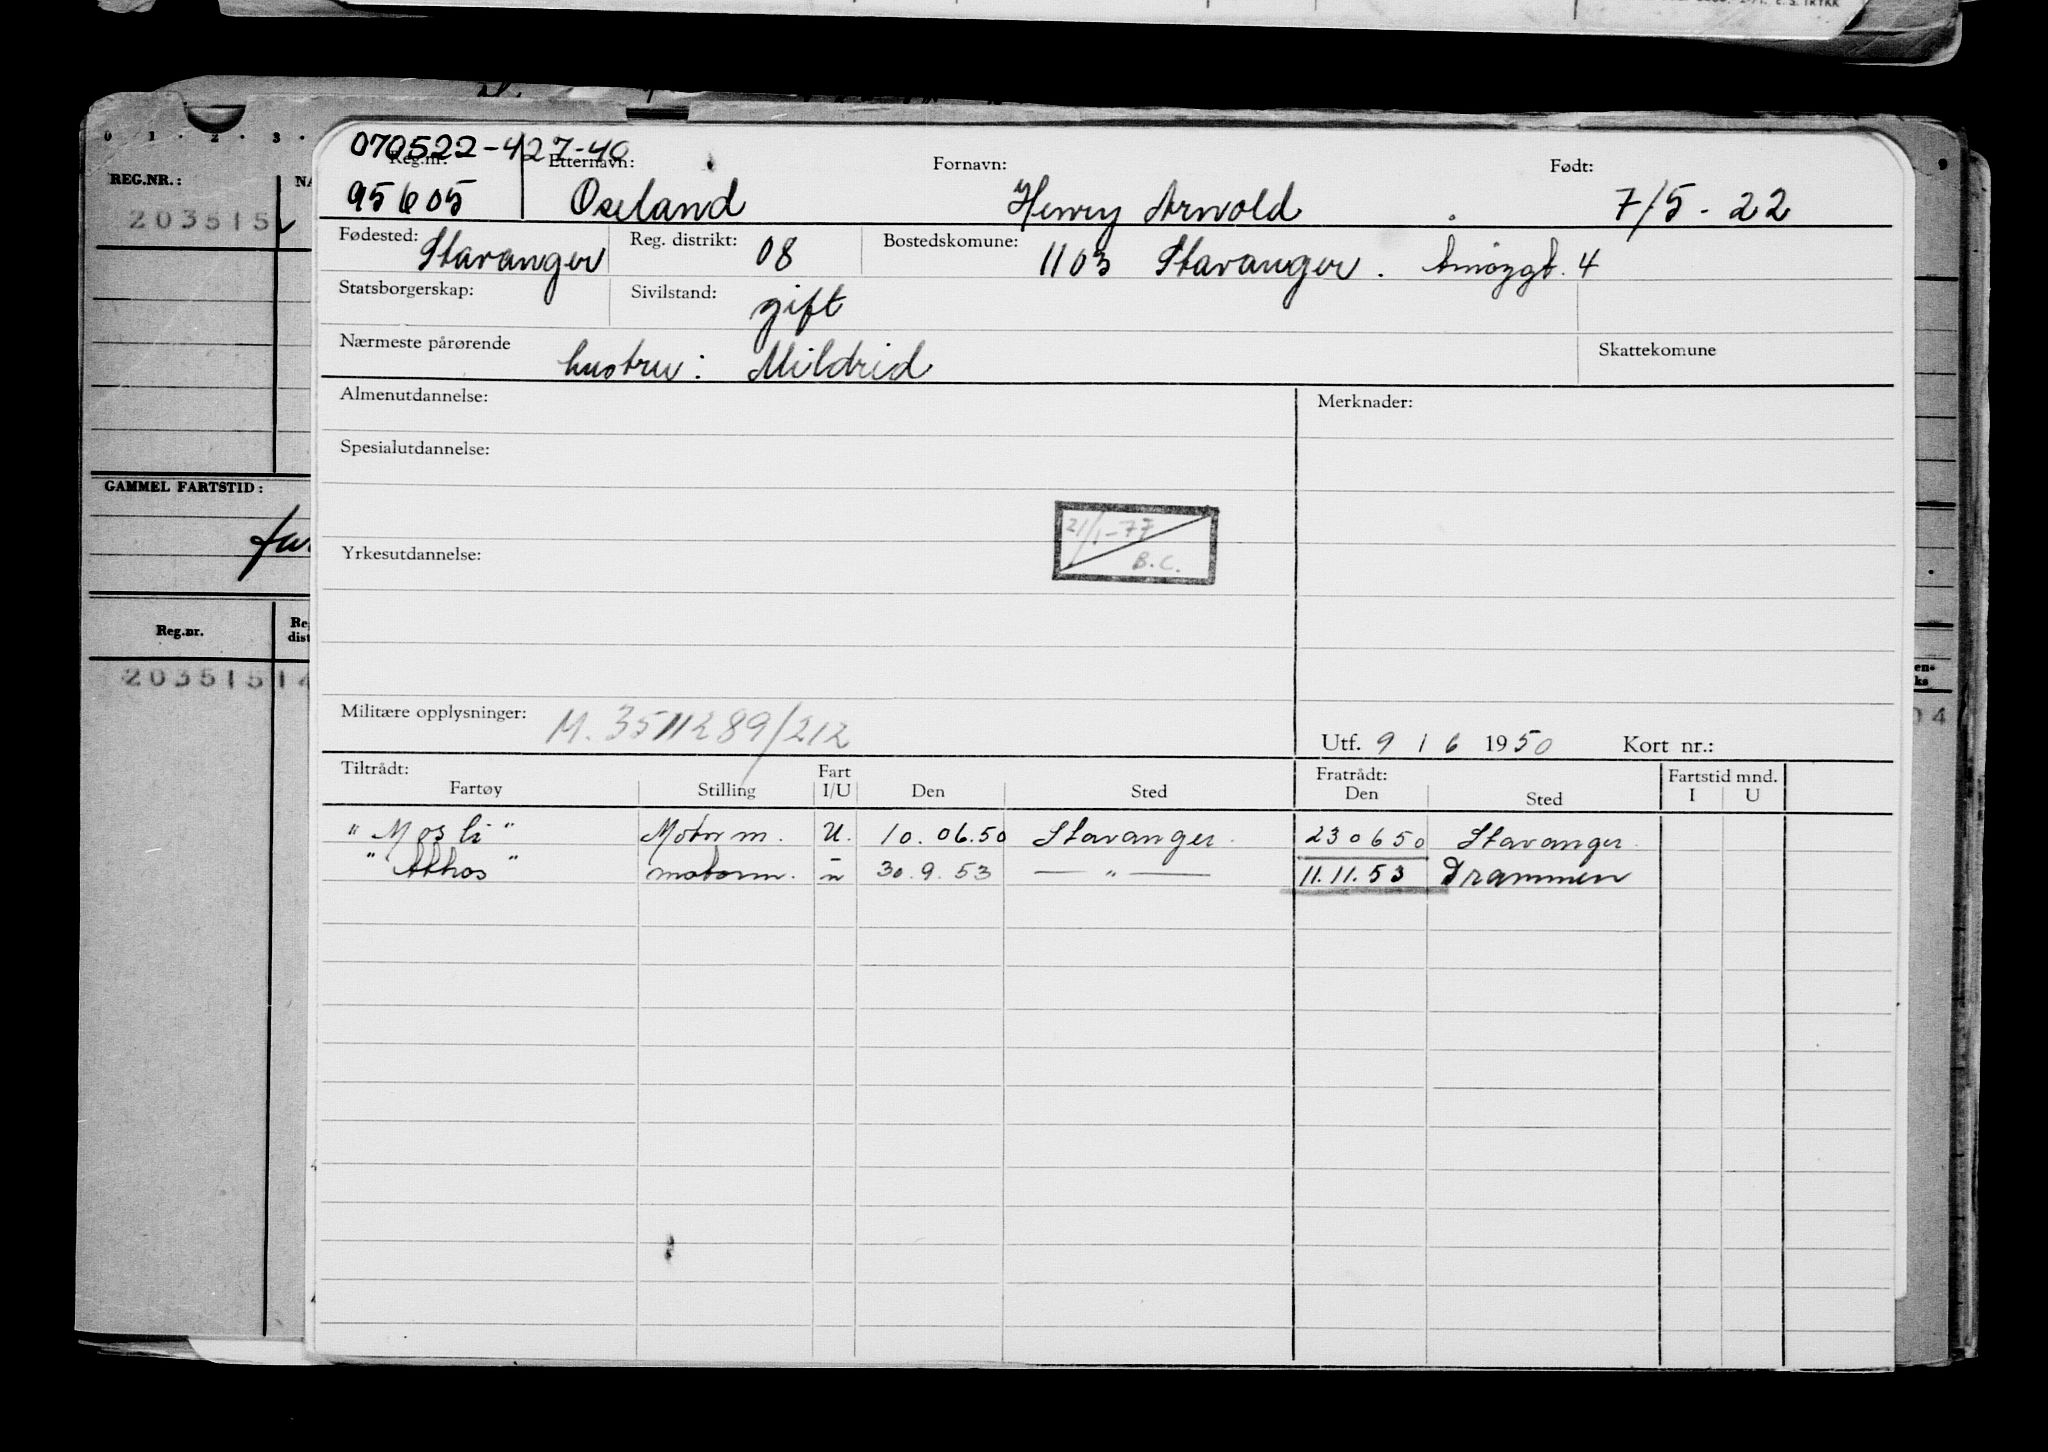 0 1 . 2 . 3 .
9
REG.NR.:
203515
GAMMEL FARTSTID:
Reg.nr.
203515 14
04
070522-427-40
Reg.nr. Etternavn: Fornavn: Født:
95605 Oseland Henry Arnold 7/5 - 22
Fødested: Stavanger Reg. distrikt: 08 Bostedskomune: 1103 Stavanger. 4
Statsborgerskap: Sivilstand: gift
Nærmeste pårørende hustru: Mildrid Skattekomune
Almenutdannelse: Merknader:
Spesialutdannelse:
21/1-77
B.C.
Yrkesutdannelse:
Militære opplysninger: M. 3511289/212
Utf. 9 / 6 1950 Kort nr.:
Tiltrådt: Fart Fratrådt: Fartstid mnd.
Fartøy Stilling I/U Den Sted Den Sted I U
"Mosli" Motorm. U. 10.06.50 Stavanger. 230650 Stavanger.
"Athos" motorm. u 30.9.53 — " — 11.11.53 Drammen